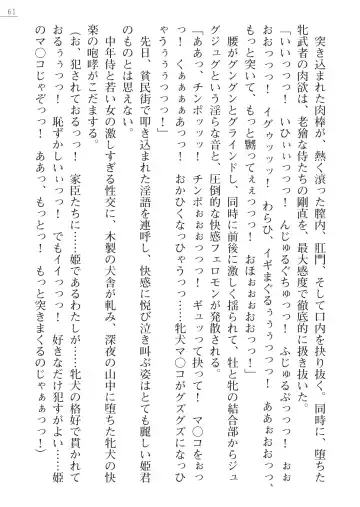 61
突き込まれた肉棒が、熱く滾った膣内、肛門、そして口内を抉り抜く。同時に、堕ちた
牝武者の肉欲は、老獪な侍たちの剛直を、最大感度で徹底的に扱き抜いた。
「いいっっっ！　いひぃぃっっっ！　んじゅるぐちゅっっ！　ふじゅるぷっっっ！　ぉぉ
おおっっっ！　イグゥッッッ！　わらひ、イギまぐるぅぅぅっっっ！　ああぉぉおおっっ、
もっと突いて、もっと嬲ってぇぇっっっ！　おほぉぉぉぉおっっ！」
腰がグングンとグラインドし、同時に前後に激しく揺られて、牡と牝の結合部からジュ
グジュグという淫らな音と、圧倒的な快感フェロモンが発散される。
「ああっ、チンポッッッ！　チンポぉぉおっっっ！　ギュッって扶って！　マ〇コをぉっ
っっ！　くぁぁぁああっっ！　おかひくなっひゃうっっっ……牝犬マ〇コがグズグズになっひ
ゃうぅぅっっっっ！」
先日、貧民街で叩き込まれた淫語を連呼し、快感に悦び泣き叫ぶ姿はとても麗しい姫君
のものとは思えない。
中年侍と若い女の激しすぎる性交に、木製の犬舎が軋み、深夜の山中に堕ちた牝犬の快
楽の咆哮がこだまする。
（お、犯されておるっっ！　家臣たちに……姫であるわたしが、牝犬の格好で貫かれて
おるぅぅっっ！　恥ずかしいっっ！　でもイイっっっ！　好きなだけ犯すがよい……姫
のマ〇コじゃぞっっ！　ああっ、もっとっ！　もっと突きまくるのじゃぁぁっっ！）